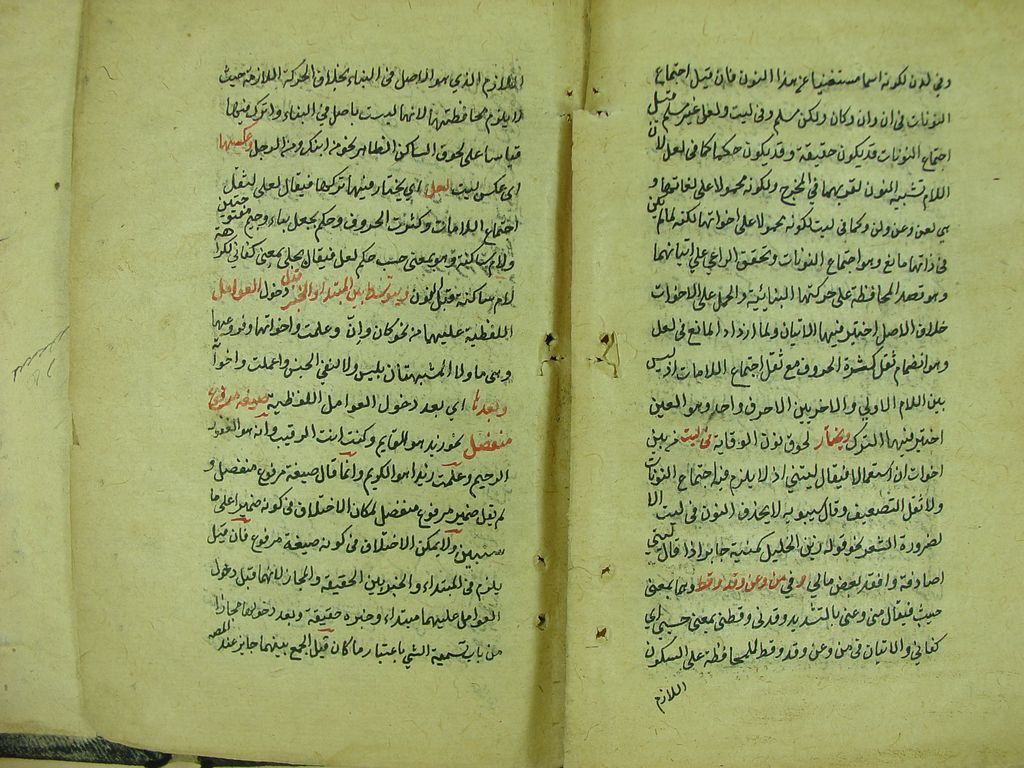 وفي لدن لكونه اسما مستغنيا عن هذا النون فان قيل اجتماع
النونات في ان وان وكان ولكن مسلم وفي ليت ولعل غير مسلم قيل
اجتماع النونات قد يكون حقيقة وقد يكون حكما كما في لعل لان
اللام تشبيه النون لقربهما في المخرج ولكونه محمولا على لغاتها و
هي لعن وعن ولن وكما في ليت لكونه محمولا على اخواتها لكنه لما لم يكن
في ذاتها مانع وهو اجتماع النونات وتحقق الراعي على اتيانهما
وهو قصد المحافظة على حركتها البنائية والحمل على الاخوات
خلاف الاصل اختير فيها الاتيان ولما ازداد المانع في لعل
وهو انضمام ثقل كثرة الحروف مع ثقل اجتماع اللامات اذ ليس
بين اللام الاولى والاخريين الا حرف واحد وهو العين
اختير فيها الترك ويختار لحوق نون الوقاية في ليت من بين
اخوات ان استعمالا فيقال ليتني اذ لا يلزم فيه اجتماع النونات
ولا ثقل التضعيف وقال سيبويه لا يحذف النون في ليت الا
لضرورة الشعر نحو قوله زين الخليل كمنية جابر اذا قال ليتي
اصادفه وافقد بعض مالي وفي من وعن وقد وقط وهما بمعنى
حسب فيقال مني وعني بالتشديد وقدني وقطني بمعنى حسبي اي
كفاني والاتيان في من وعن وقد وقط للمحافظة على السكون
اللازم
اللازم الذي هو الاصل في البناء بخلاف الحركة اللازمة حيث
لا يلزم محافظتها لانها ليست باصل في البناء والترك فيها
قياسا على لحوق الساكن الظاهر نحو من ابنك ومن الرجل وعكسها
اي عكس ليت لعل اي يختار فيها تركها فيقال لعلي لثقل
اجتماع اللامات وكثرت الحروف وحكم بجل بباء وجيم مفتوحتين
ولام ساكنة وهو بمعنى حسب حكم لعل فيقال بجلي بمعنى كفاني لكراهة
لام ساكنة قبل النون ويتوسط بين المبتدا والخبر قبل دخول العوامل
اللفظية عليهما من نحو كان وان وعلمت واخواتها وفروعها
وهي ما ولا المشبهتان بليس ولا لنفي الجنس واعلمت واخواتها
وبعدها اي بعد دخول العوامل اللفظية صيغة مرفوع
منفصل نحو زيد هو القايم وكنت انت الرقيب وانه هو الغفور
الرحيم وعلمت زيدا هو الكريم وانما قال صيغة مرفوع منفصل و
لم يقل ضمير مرفوع منفصل لمكان الاختلاف في كونه ضميرا على ما
سنبين ولا يمكن الاختلاف في كونه صيغة مرفوع فان قيل
يلزم في المبتداء والخبر بين الحقيقة والمجاز لانهما قبل دخول
العوامل عليهما مبتداء وخبره حقيقة وبعد دخولها مجازا
من باب تسمية الشي باعتبار ما كان قيل الجمع بينهما جايز عند المصه